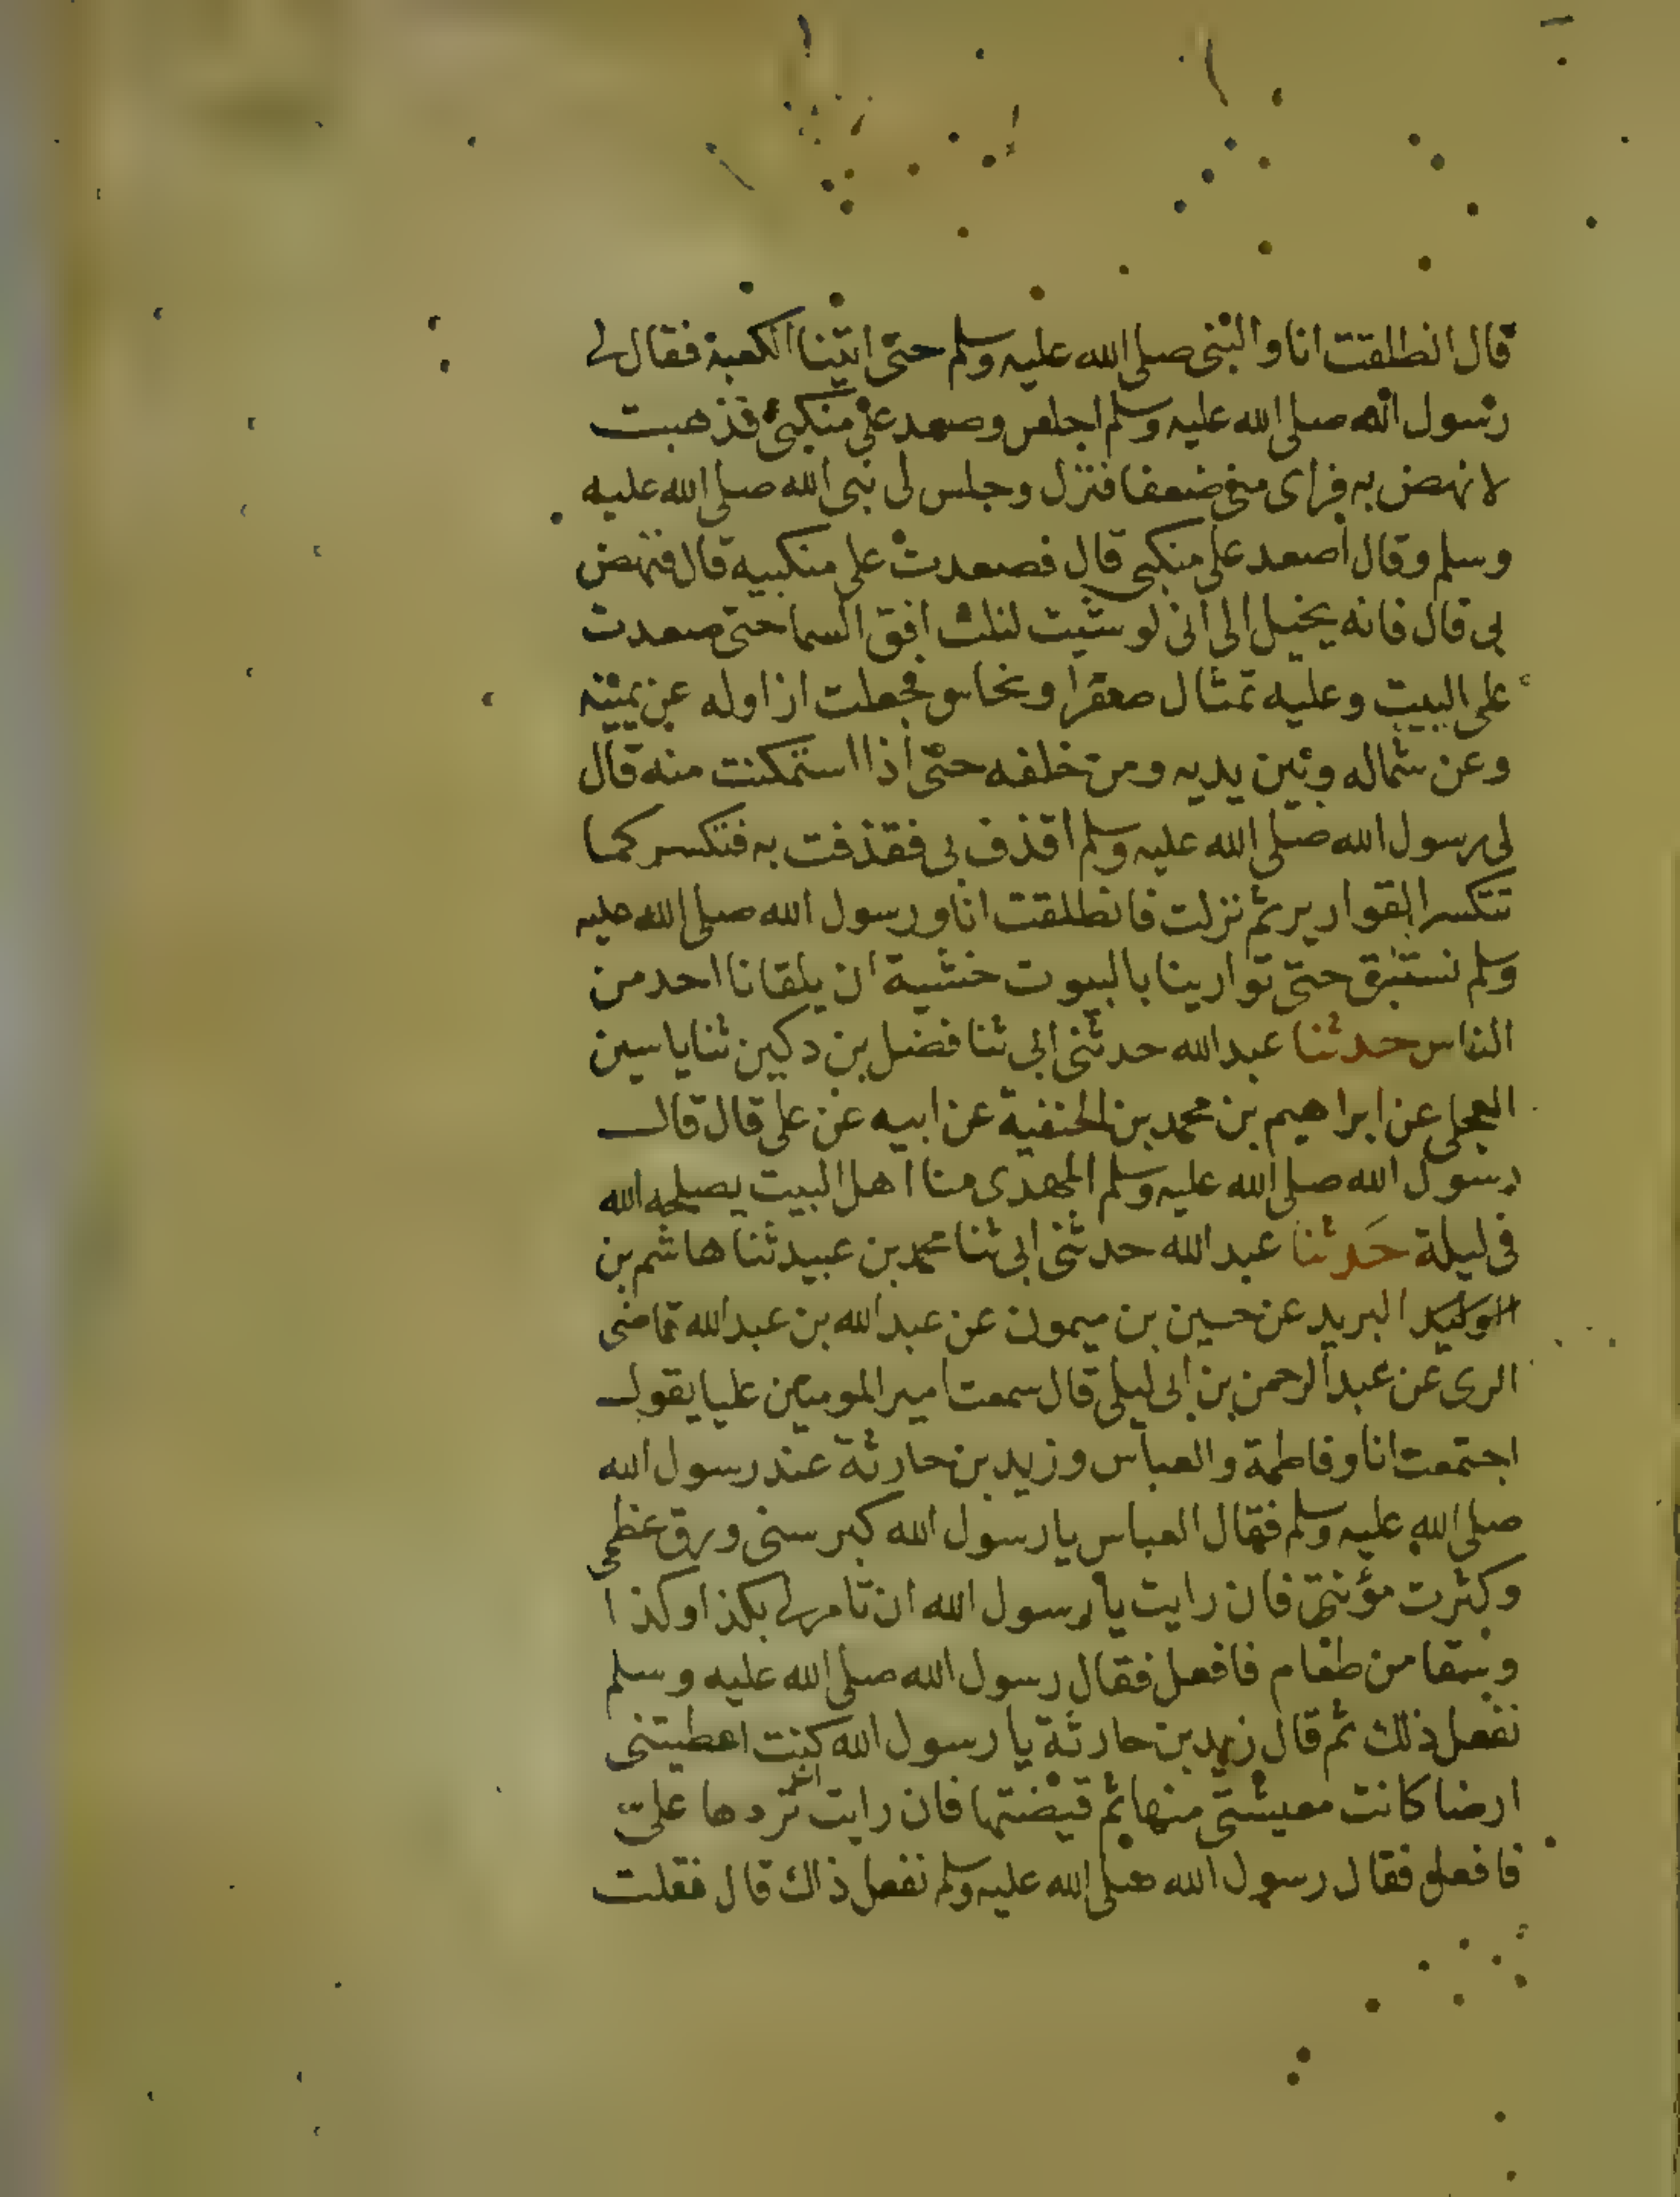 قال انطلقت انا والنبى صلى الله عليه وسلم حتى اتينا الكعبة فقال لى
رسول الله صلى الله عليه وسلم اجلس وصعد على منكبى فذهبت
لانهض به فراى منى ضعفا فنزل وجلس لى نبى الله صلى الله عليه
وسلم وقال اصعد على منكبى قال فصعدت على منكبيه قال فنهض
بى قال فانه يخيل الى انى لو شيت لنلت افق السما حتى صعدت
على البيت وعليه تمثال صفرا ونحاس فجعلت ازاوله عن يمينه
وعن شماله وبين يديه ومن خلفه حتى اذا استمكنت منه قال
لى رسول الله صلى الله عليه وسلم اقذف بى فقذفت به فتكسر كما
تتكسر القوارير ثم نزلت فانطلقت انا ورسول الله صلى الله عليه
وسلم نستبق حتى توارينا بالبيوت خشية ان يلقانا احد من
الناس حدثنا عبد الله حدثنى ابى ثنا فضل بن دكين ثنا ياسين
العجلى عن ابراهيم بن محمد بن الحنفية عن ابيه عن على قال قال
رسول الله صلى الله عليه وسلم المهدى منا اهل البيت يصلحه الله
فى ليلة حدثنا عبد الله حدثنى ابى ثنا محمد بن عبيد ثنا هاشم بن
البريد عن حسين بن ميمون عن عبد الله بن عبد الله قاضى
الرى عن عبد الرحمن بن ابى ليلى قال سمعت امير المومنين عليا يقول
اجتمعت انا وفاطمة والعباس وزيد بن حارثة عند رسول الله
صلى الله عليه وسلم فقال العباس يا رسول الله كبر سنى ورق عظمى
وكثرت مؤنتى فان رايت يا رسول الله ان تامر لى بكذا وكذا
وسقا من طعام فافعل فقال رسول الله صلى الله عليه وسلم
نفعل ذلك ثم قال زيد بن حارثة يا رسول الله كنت اعطيتنى
ارضا كانت معيشتى منها ثم قبضتها فان رايت ان تردها على
فافعل فقال رسول الله صلى الله عليه وسلم نفعل ذاك قال فقلت